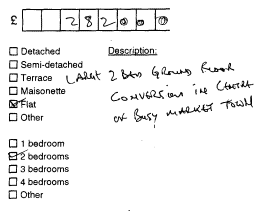 £ 282000
Detached Description:
Semi-detached
Terrace LARGE 2 BED GROUND FLOOR
Maisonette CONVERSION IN CENTRE
Flat OF BUSY MARKET TOWN
Other
1 bedroom
2 bedrooms
3 bedrooms
4 bedrooms
Other